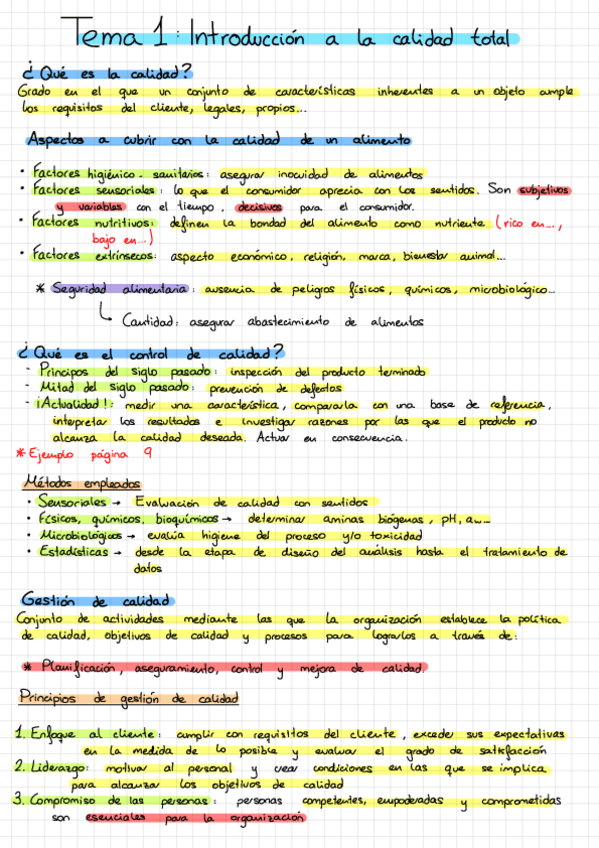 Tema 1: Introducción a la calidad total
¿Qué es la calidad?
Grado en el que un conjunto de características inherentes a un objeto cumple
los requisitos del cliente, legales, propios...
Aspectos a cubrir con la calidad de un alimento
• Factores higiénico-sanitarios: asegurar inocuidad de alimentos
• Factores sensoriales: lo que el consumidor aprecia con los sentidos. Son subjetivos
y variables con el tiempo, decisivos para el consumidor.
• Factores nutritivos: definen la bondad del alimento como nutriente (rico en...,
bajo en...)
• Factores extrínsecos: aspecto económico, religión, marca, bienestar animal...
* Seguridad alimentaria: ausencia de peligros físicos, químicos, microbiológico...
Cantidad: asegurar abastecimiento de alimentos
¿Qué es el control de calidad?
- Principos del siglo pasado: inspección del producto terminado
- Mitad del siglo pasado: prevención de defectos
- ¡Actualidad!: medir una característica, compararla con una base de referencia,
interpretar los resultados e investigar razones por las que el producto no
alcanza la calidad deseada. Actuar en consecuencia.
* Ejemplo página 9
Métodos empleados
• Sensoriales → Evaluación de calidad con sentidos
• Físicos, químicos, bioquímicos → determinar aminas biógenas, pH, aw...
• Microbiológicos → evalúa higiene del proceso y/o toxicidad
• Estadísticas → desde la etapa de diseño del análisis hasta el tratamiento de
datos
Gestión de calidad
Conjunto de actividades mediante las que la organización establece la política
de calidad, objetivos de calidad y procesos para lograrlos a través de:
* Planificación, aseguramiento, control y mejora de calidad.
Principios de gestión de calidad
1. Enfoque al cliente: cumplir con requisitos del cliente, exceder sus expectativas
en la medida de lo posible y evaluar el grado de satisfacción
2. Liderazgo: motivar al personal y crear condiciones en las que se implica
para alcanzar los objetivos de calidad
3. Compromiso de las personas: personas competentes, empoderadas y comprometidas
son esenciales para la organización